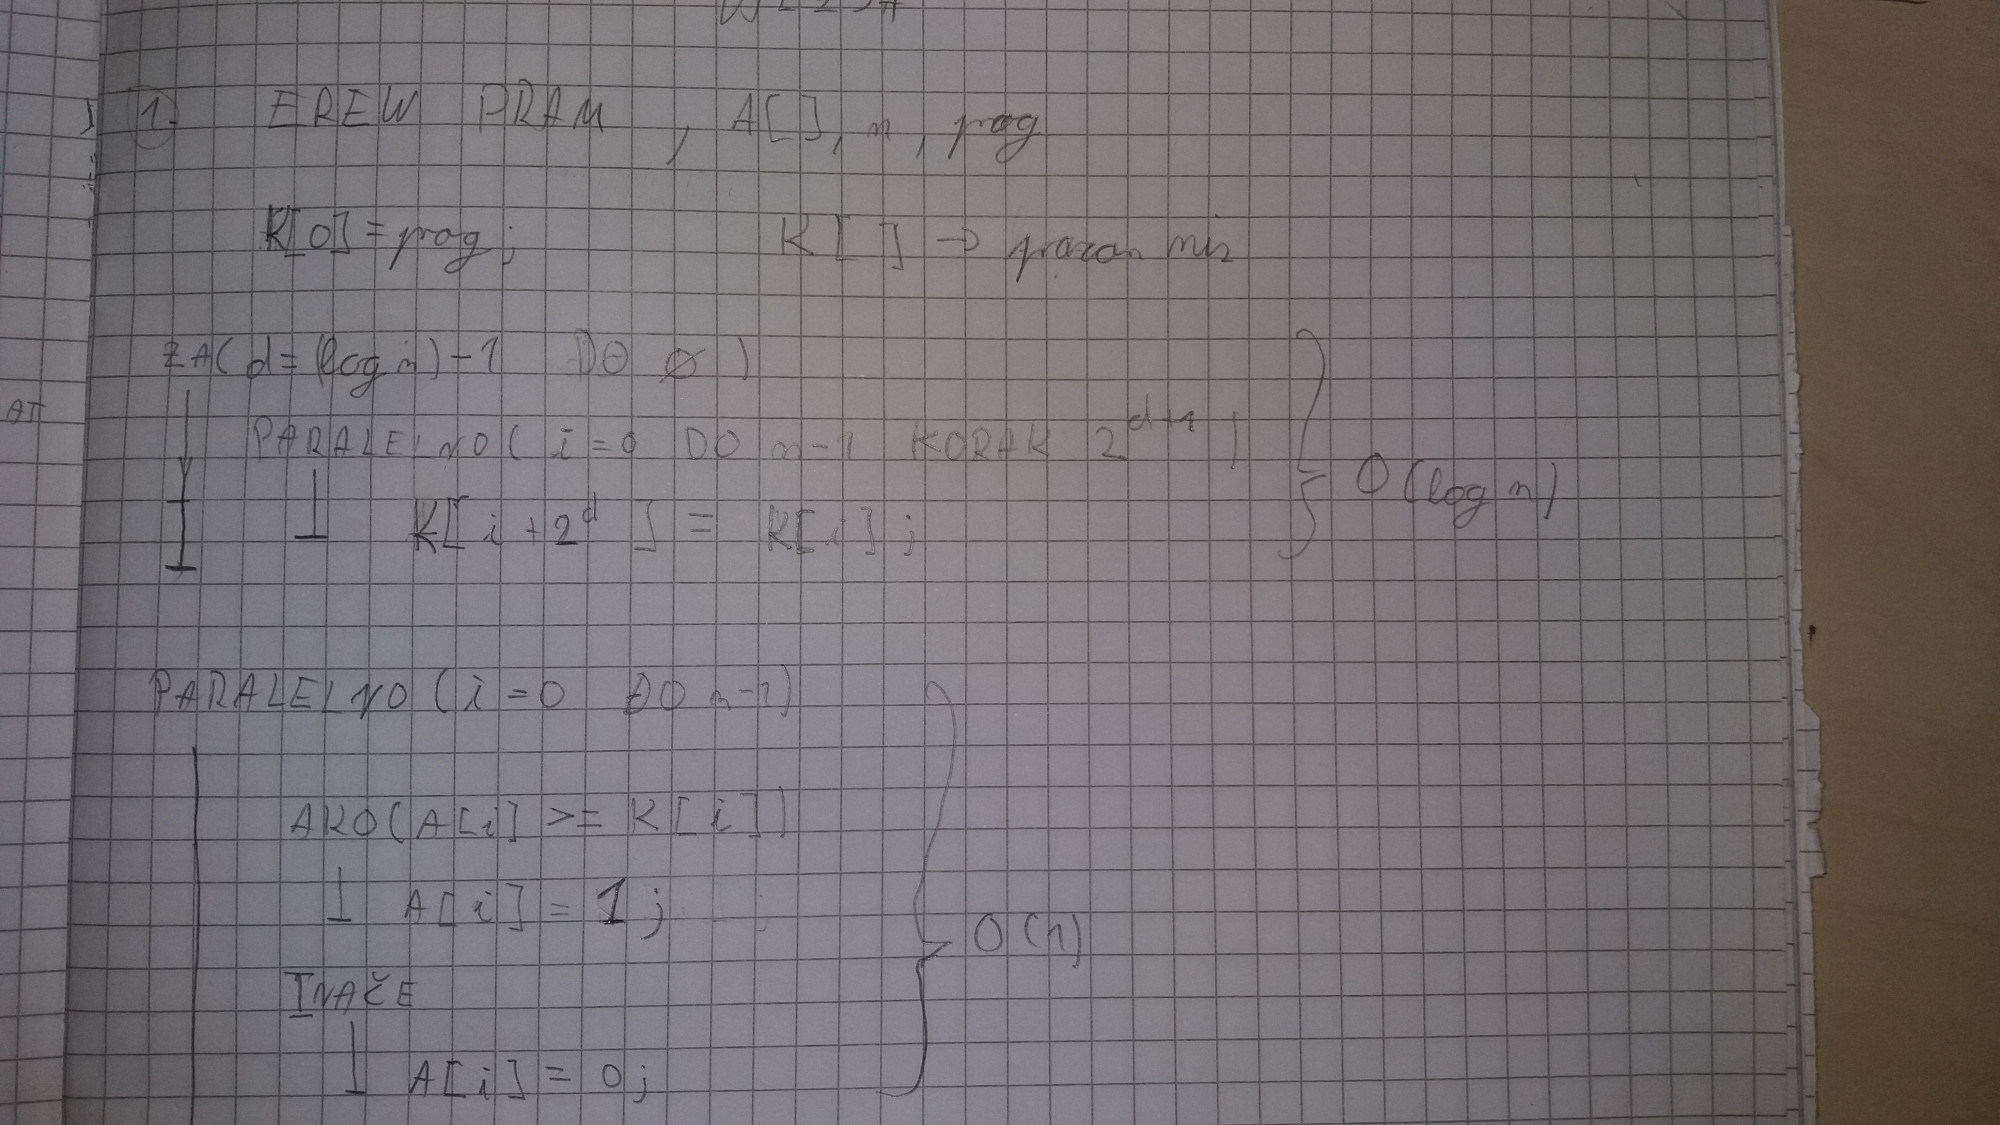 1. EREW PRAM, A[], n, prag
K[0] = prag; K[ ] → prazan niz
ZA( d = (log n) - 1 DO 0 )
PARALELNO( i = 0 DO n-1 KORAK 2^{d+1} )
K[i + 2^d] = K[i];
O(log n)
PARALELNO (i = 0 DO n-1)
AKO( A[i] >= K[i])
A[i] = 1;
O(n)
INAČE
A[i] = 0;